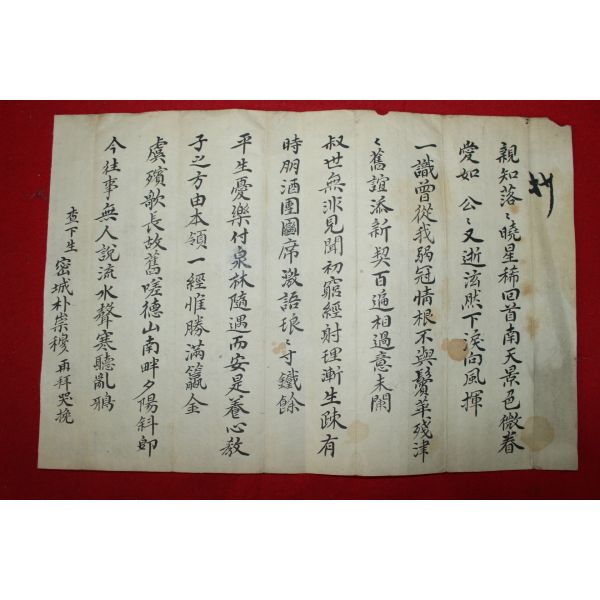 親知落〻曉星稀回首南天景色微眷
愛如 公〻又逝泫然下淚向風揮
一識曾從我弱冠情根不與鬢華殘津
〻舊誼添新契百遍相過意未闌
叔世無非見聞初窮經射理漸生踈有
時朋酒團圓席激語琅〻寸鐵餘
平生憂樂付泉林隨遇而安是養心敎
子之方由本領一經惟勝滿籯金
虞殯歌長故舊嗟德山南畔夕陽斜卽
今往事無人說流水聲寒聽亂鴉
査下生 密城朴崇穆 再拜哭挽